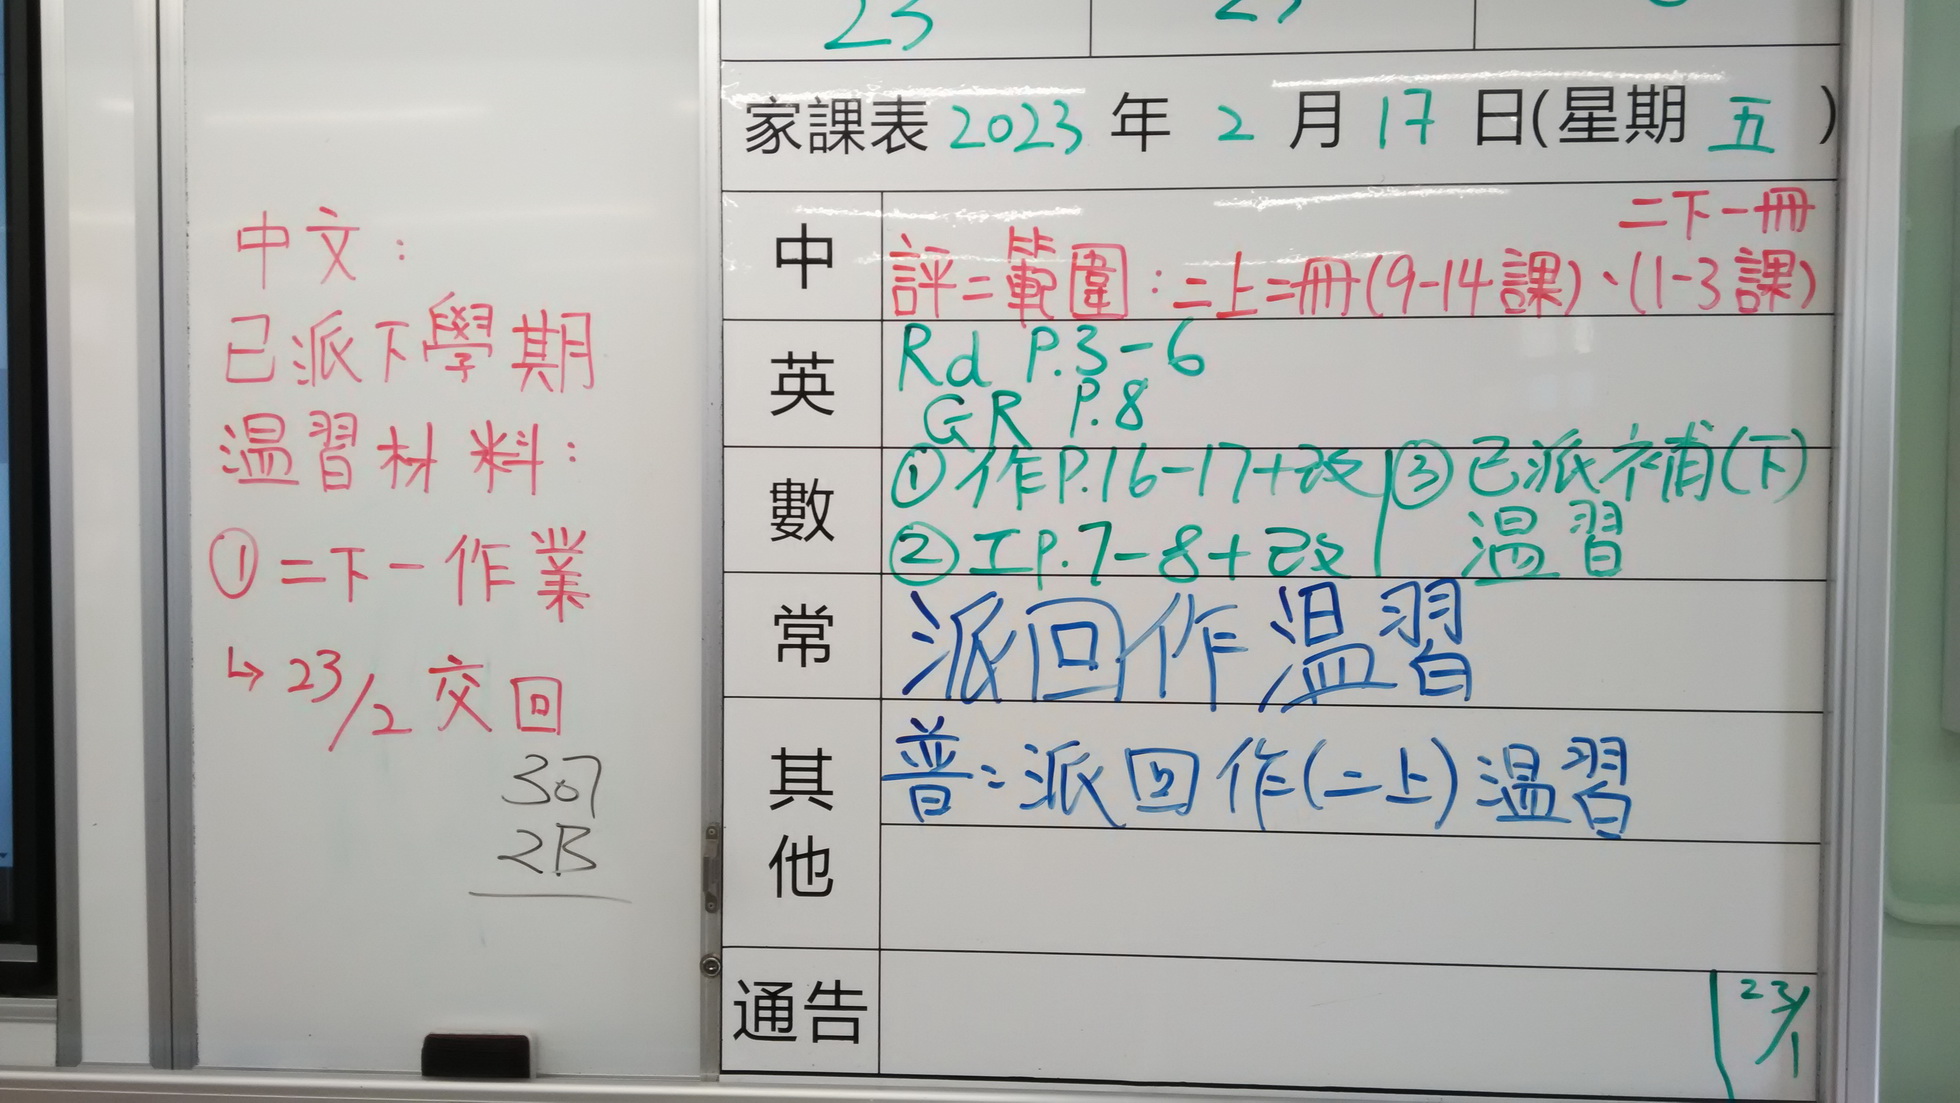 中文：
已派下學期
温習材料：
① 二下一作業
↳ 23/2 交回
307
2B
23
家課表 2023 年 2 月 17 日(星期 五 )
中
二下一冊
評二範圍：二上二冊(9-14課)、(1-3課)
英
Rd P.3-6
GR P.8
數
①作P.16-17+改
②工P.7-8+改
③已派補(下)
温習
常
派回作温習
其他
普：派回作(二上)温習
通告
23/1